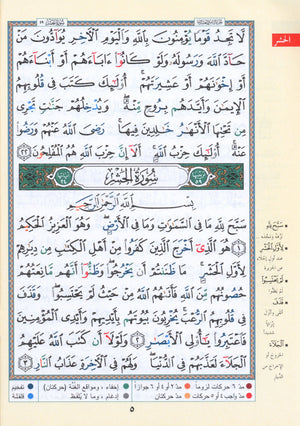 الحشر
لَّا تَجِدُ قَوْمًا يُؤْمِنُونَ بِاللَّهِ وَالْيَوْمِ الْآخِرِ يُوَادُّونَ مَنْ
حَادَّ اللَّهَ وَرَسُولَهُ وَلَوْ كَانُوا ءَابَاءَهُمْ أَوْ أَبْنَاءَهُمْ
أَوْ إِخْوَانَهُمْ أَوْ عَشِيرَتَهُمْ أُولَٰئِكَ كَتَبَ فِي قُلُوبِهِمُ
الْإِيمَٰنَ وَأَيَّدَهُم بِرُوحٍ مِّنْهُ وَيُدْخِلُهُمْ جَنَّٰتٍ تَجْرِي
مِن تَحْتِهَا الْأَنْهَٰرُ خَٰلِدِينَ فِيهَا رَضِيَ اللَّهُ عَنْهُمْ وَرَضُوا
عَنْهُ أُولَٰئِكَ حِزْبُ اللَّهِ أَلَا إِنَّ حِزْبَ اللَّهِ هُمُ الْمُفْلِحُونَ ٢٢
سُورَةُ الْحَشْرِ
بِسْمِ اللَّهِ الرَّحْمَٰنِ الرَّحِيمِ
سَبَّحَ لِلَّهِ مَا فِي السَّمَٰوَٰتِ وَمَا فِي الْأَرْضِ وَهُوَ الْعَزِيزُ الْحَكِيمُ
١ هُوَ الَّذِي أَخْرَجَ الَّذِينَ كَفَرُوا مِنْ أَهْلِ الْكِتَٰبِ مِن دِيَٰرِهِمْ
لِأَوَّلِ الْحَشْرِ مَا ظَنَنتُمْ أَن يَخْرُجُوا وَظَنُّوا أَنَّهُم مَّانِعَتُهُمْ
حُصُونُهُم مِّنَ اللَّهِ فَأَتَىٰهُمُ اللَّهُ مِنْ حَيْثُ لَمْ يَحْتَسِبُوا وَقَذَفَ
فِي قُلُوبِهِمُ الرُّعْبَ يُخْرِبُونَ بُيُوتَهُم بِأَيْدِيهِمْ وَأَيْدِي الْمُؤْمِنِينَ
فَاعْتَبِرُوا يَٰأُولِي الْأَبْصَٰرِ ٢ وَلَوْلَا أَن كَتَبَ اللَّهُ عَلَيْهِمُ
الْجَلَاءَ لَعَذَّبَهُمْ فِي الدُّنْيَا وَلَهُمْ فِي الْآخِرَةِ عَذَابُ النَّارِ ٣
سَبَّحَ لِلَّهِ
لِأَوَّلِ الْحَشْرِ
لَمْ يَحْتَسِبُوا
قَذَفَ
الْجَلَاءَ
مدّ ٦ حركات لزوماً
مدّ ٢ أو ٤ أو ٦ جوازاً
إخفاء، ومواقع الغُنَّة (حركتان)
تفخيم
مدّ واجب ٤ أو ٥ حركات
مدّ حركتان
إدغام، وما لا يُلفَظ
قلقلة
٥